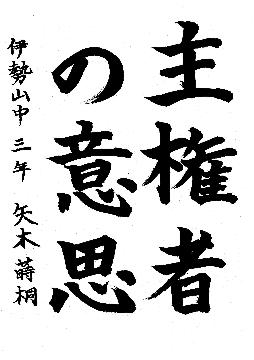 主権者
の意思
伊勢山中 三年 矢木蒔桐